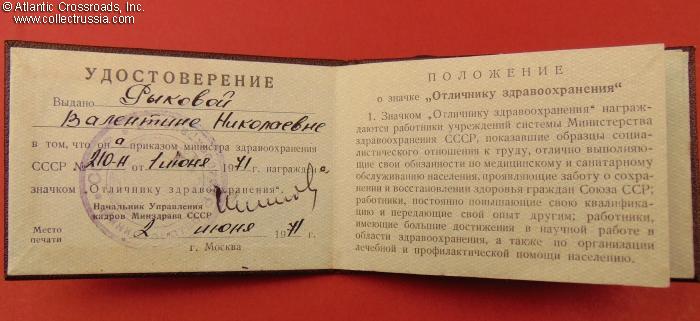 © Atlantic Crossroads, Inc.
www.collectrussia.com
УДОСТОВЕРЕНИЕ
Выдано Рыковой
Валентине Николаевне
в том, что он а приказом министра здравоохранения
СССР № 210-Н от 1 июня 1971 г. награжден а
значком „Отличнику здравоохранения“.
Начальник Управления
кадров Минздрава СССР
Место
печати
2 июня 1971 г.
г. Москва
ПОЛОЖЕНИЕ
о значке „Отличнику здравоохранения“
1. Значком „Отличнику здравоохранения“ награж-
даются работники учреждений системы Министерства
здравоохранения СССР, показавшие образцы социали-
стического отношения к труду, отлично выполняю-
щие свои обязанности по медицинскому и санитарному
обслуживанию населения, проявляющие заботу о сохра-
нении и восстановлении здоровья граждан Союза ССР;
работники, постоянно повышающие свою квалифика-
цию и передающие свой опыт другим; работники,
имеющие большие достижения в научной работе в
области здравоохранения, а также по организации
лечебной и профилактической помощи населению.